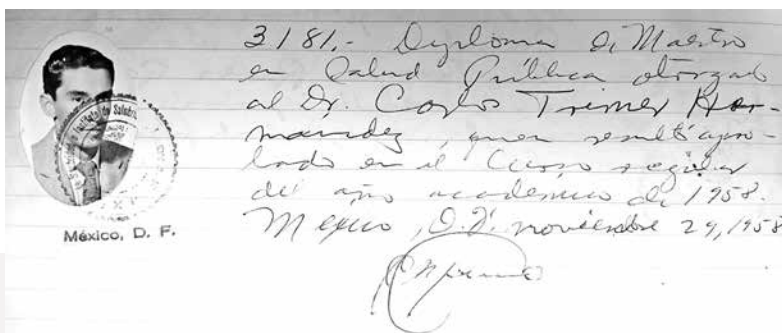 3181.- Diploma de Maestro
en Salud Pública otorgado
al Dr. Carlos Treviner Her-
mandez, quien resultó apro-
bado en el Curso regular
del año academico de 1958.
Mexico, D.F. noviembre 29, 1958
México, D. F.